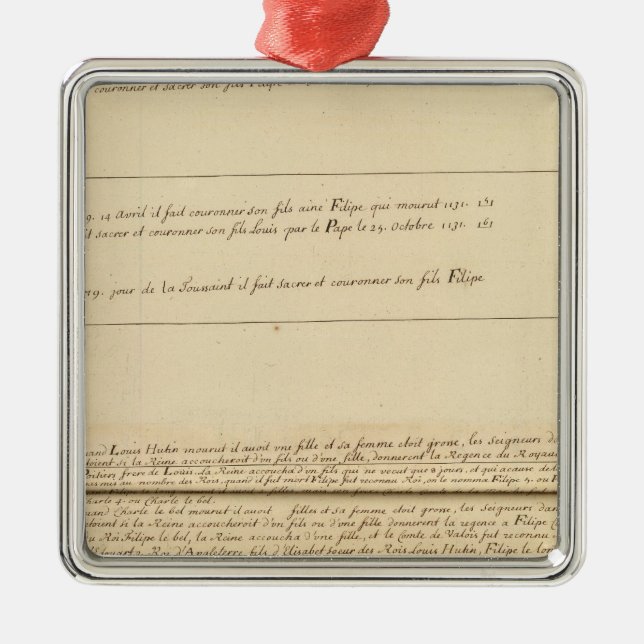 couronner et sacrer son fils
9. 14 Avril il fait couronner son fils ainé Filipe qui mourut 1131. 151
it sacrer et couronner son fils Louis par le Pape le 25. Octobre 1131. 161
79. jour de la Toussaint il fait sacrer et couronner son fils Filipe
uand Louis Hutin mourut il avoit vne fille et sa femme etoit grosse, les Seigneurs da
toient si la Reine accoucheroit d'un fils ou d'une fille, donnerent la Regence du Royau
Poitiers frere de Louis. la Reine accoucha d'un fils qui ne vecut que 8 jours, et qui a cause de
pas mis au nombre des Rois, quand il fut mort Filipe fut reconnu Roi, on le nomma Filipe 5. ou
Charle 4. ou Charle le bel.
uand Charle le bel mourut il avoit filles et sa femme etoit grosse, les Seigneurs dan
etoient si la Reine accoucheroit d'un fils ou d'une fille donnerent la regence a Filipe
du Roi Filipe le bel, la Reine accoucha d'une fille, et le Comte de Valois fut reconnu
Roi d'Angleterre fils d'Elisabet soeur des Rois Louis Hutin, Filipe le lon